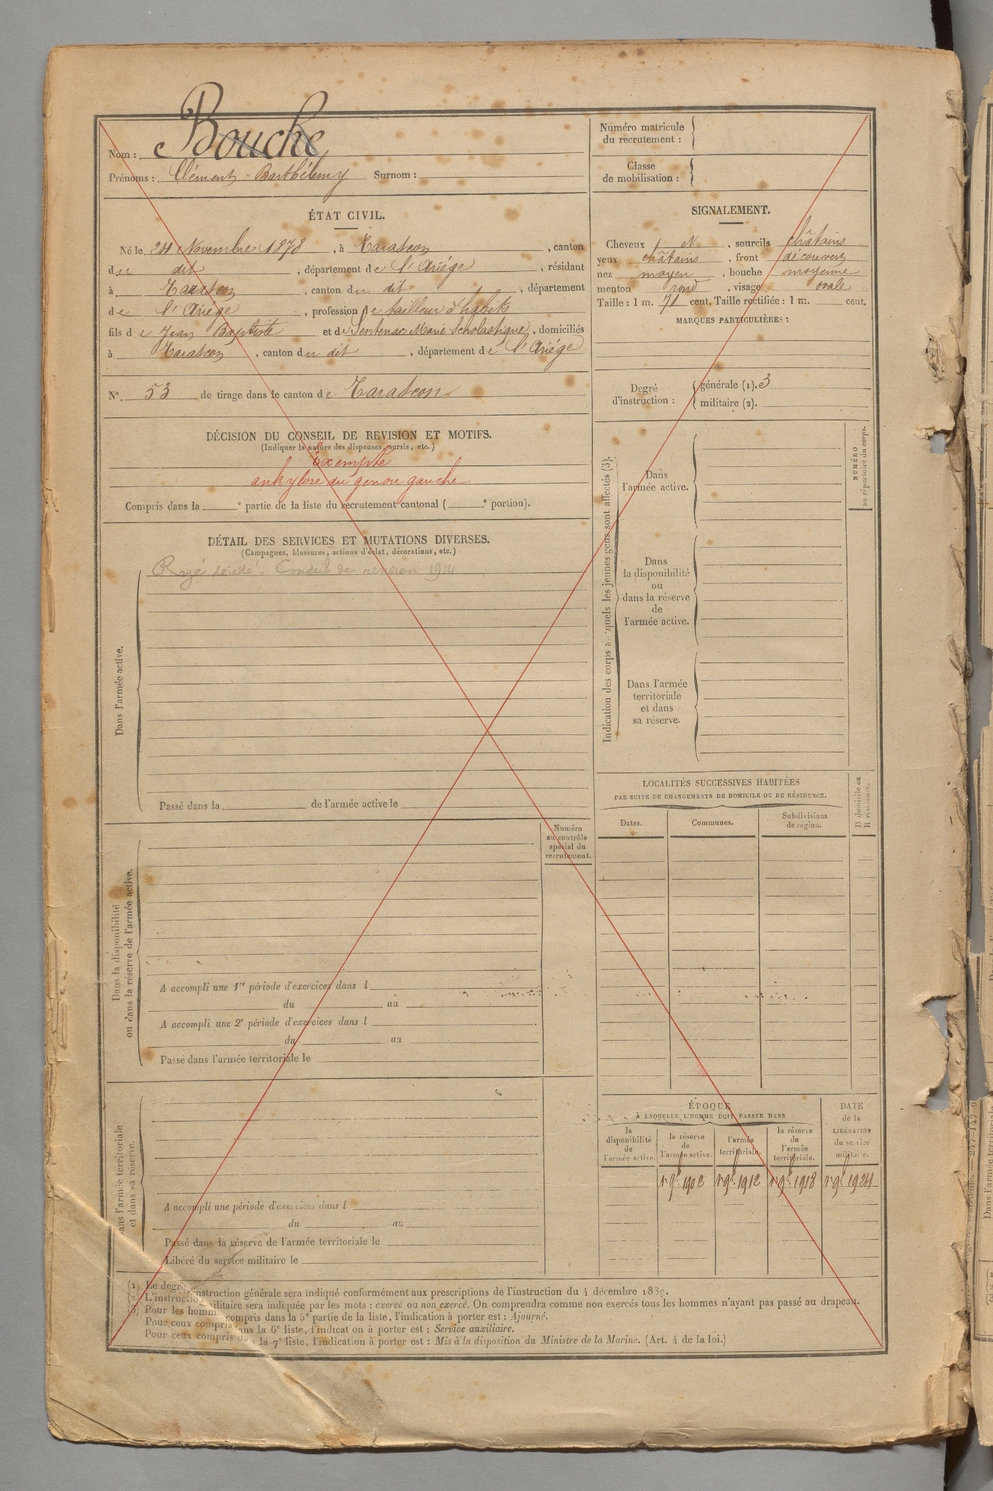 Nom : Bouche
Prénoms : Clément - Barthélemy Surnom :
Numéro matricule
du recrutement :
Classe
de mobilisation :
ÉTAT CIVIL.
Né le 24 Novembre 1878, à Tarascon, canton
du dit, département de l'Ariège, résidant
à Tarascon, canton du dit, département
de l'Ariège, profession de tailleur d'habits
fils de Jean Baptiste et de Sentenac Marie Scholastique, domiciliés
à Tarascon, canton du dit, département de l'Ariège
N° 53 de tirage dans le canton de Tarascon
SIGNALEMENT.
Cheveux N, sourcils châtains
yeux châtains, front découvert
nez moyen, bouche moyenne
menton rond, visage ovale
Taille : 1 m. 71 cent. Taille rectifiée : 1 m. cent.
MARQUES PARTICULIÈRES :
Degré
d'instruction :
générale (1). 3
militaire (2).
DÉCISION DU CONSEIL DE REVISION ET MOTIFS.
(Indiquer la nature des dispenses, sursis, etc.)
Exempté
ankylose du genou gauche
Compris dans la e partie de la liste du recrutement cantonal ( e portion).
DÉTAIL DES SERVICES ET MUTATIONS DIVERSES.
(Campagnes, blessures, actions d'éclat, décorations, etc.)
Rayé décédé. Conseil de révision 1914
Dans l'armée active.
Passé dans la de l'armée active le
Indication des corps auxquels les jeunes gens sont affectés (3).
Dans
l'armée active.
Dans
la disponibilité
ou
dans la réserve
de
l'armée active.
Dans l'armée
territoriale
et dans
sa réserve.
NUMÉRO
au répertoire du corps.
LOCALITÉS SUCCESSIVES HABITÉES
PAR SUITE DE CHANGEMENTS DE DOMICILE OU DE RÉSIDENCE.
Dates.
Communes.
Subdivisions
de région.
Domicile ou
Résidence.
Numéro
au contrôle
spécial du
recrutement.
Dans la disponibilité
ou dans la réserve de l'armée active.
A accompli une 1re période d'exercices dans l
du au
A accompli une 2e période d'exercices dans l
du au
Passé dans l'armée territoriale le
Dans l'armée territoriale
et dans sa réserve.
A accompli une période d'exercices dans l
du au
Passé dans la réserve de l'armée territoriale le
Libéré du service militaire le
ÉPOQUE
À LAQUELLE L'HOMME DOIT PASSER DANS
la
disponibilité
de
l'armée active.
la réserve
de
l'armée active.
l'armée
territoriale.
la réserve
de
l'armée
territoriale.
DATE
de la
LIBÉRATION
du service
militaire.
1 9bre 1902 1 9bre 1912 1 9bre 1918 1 9bre 1924
(1) Le degré d'instruction générale sera indiqué conformément aux prescriptions de l'instruction du 4 décembre 1889.
(2) L'instruction militaire sera indiquée par les mots : exercé ou non exercé. On comprendra comme non exercés tous les hommes n'ayant pas passé au drapeau.
(3) Pour les hommes compris dans la 5e partie de la liste, l'indication à porter est : Ajourné.
Pour ceux compris dans la 6e liste, l'indication à porter est : Service auxiliaire.
Pour ceux compris dans la 7e liste, l'indication à porter est : Mis à la disposition du Ministre de la Marine. (Art. 4 de la loi.)